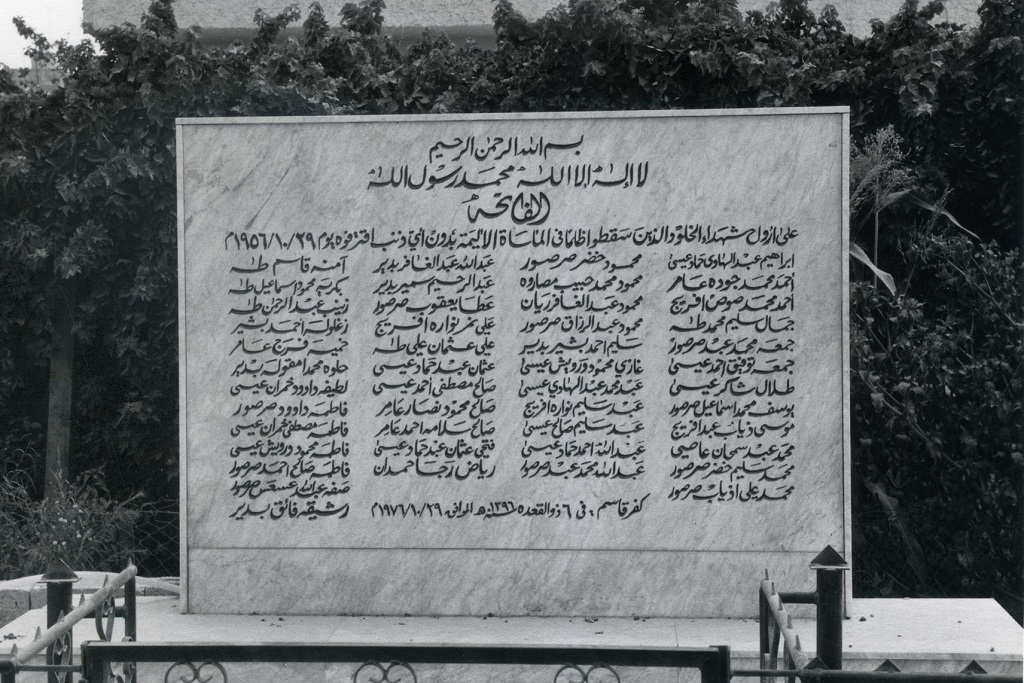 بسم الله الرحمن الرحيم
لا إله إلا الله محمد رسول الله
الفاتحة
على ارواح شهداء الخلود الذين سقطوا ظلما في المأساة الأليمة بدون اي ذنب اقترفوه يوم ١٩٥٦/١٠/٢٩م
ابراهيم عبد الهادي حماد عيسى محمود خضر صرصور عبد الله عبد الغافر بدير آمنه قاسم طه
أحمد محمد جوده عامر محمود محمد حبيب مصاروه عبد الرحيم سمير بدير بكريه محمود اسماعيل طه
أحمد محمد فريج محمود عبد الغافر ريان عطا يعقوب صرصور زينب عبد الرحمن طه
جمال سليم محمد طه محمود عبد الرزاق صرصور علي نمر نواره افريج زغلوله احمد بشير
جمعه محمد عبد صرصور سليم احمد بشير بدير علي عثمان علي طه خميسه فرج عامر
جمعه توفيق أحمد عيسى غازي محمود درويش عيسى عثمان عبد حماد عيسى حلوه محمد بدير
طلال شاكر عيسى عبد محمد عبد الهادي عيسى صالح مصطفى أحمد عيسى لطيفه داوود عيسى
يوسف محمد اسماعيل صرصور عبد سليم نواره افريج صالح محمود نصار عامر فاطمه داوود صرصور
موسى ذياب عبد افريج عبد سليم صالح عيسى صالح سلامه احمد عامر فاطمه مصطفى عيسى
محمد عبد سمحان عاصي عبد الله أحمد حماد عيسى فتحي عثمان عبد حماد عيسى فاطمه محمود درويش عيسى
محمد سليم خضر صرصور عبد الله محمد عبد صرصور رياض رجا حمدان فاطمه صالح احمد صرصور
محمد علي اذياب صرصور صفيه عبد الله صرصور
كفر قاسم: في ٦ ذو القعده سنة ١٣٩٦ هـ الموافق ١٩٧٦/١٠/٢٩م رشيقه فائق بدير